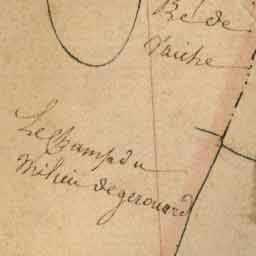 Re de
Vriche
Le Champ du
Milieu de gerouard